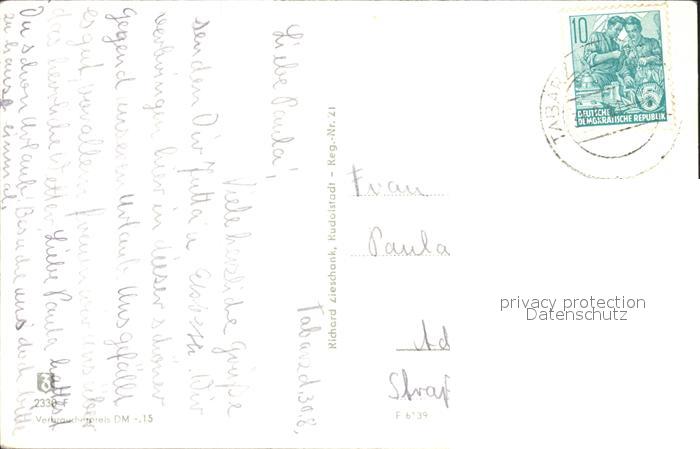 Tabarz d. 30.8.
Liebe Paula!
Viele herzliche Grüße
senden Dir Jutta u. Wir
verbringen hier in dieser schönen
gegend unseren Urlaub. Uns gefällt
es gut, vor allem freuen wir uns über
das herrliche Wetter. Liebe Paula hattest
Du schon Urlaub? Besuche uns doch bitte
zu hause einmal.
Richard Zieschank, Rudolstadt - Reg.-Nr. 21
Frau
Paula
Straß
10
DEUTSCHE
DEMOKRATISCHE REPUBLIK
TABARZ
privacy protection
Datenschutz
2330 F
Verbraucherpreis DM -.15
F 6139